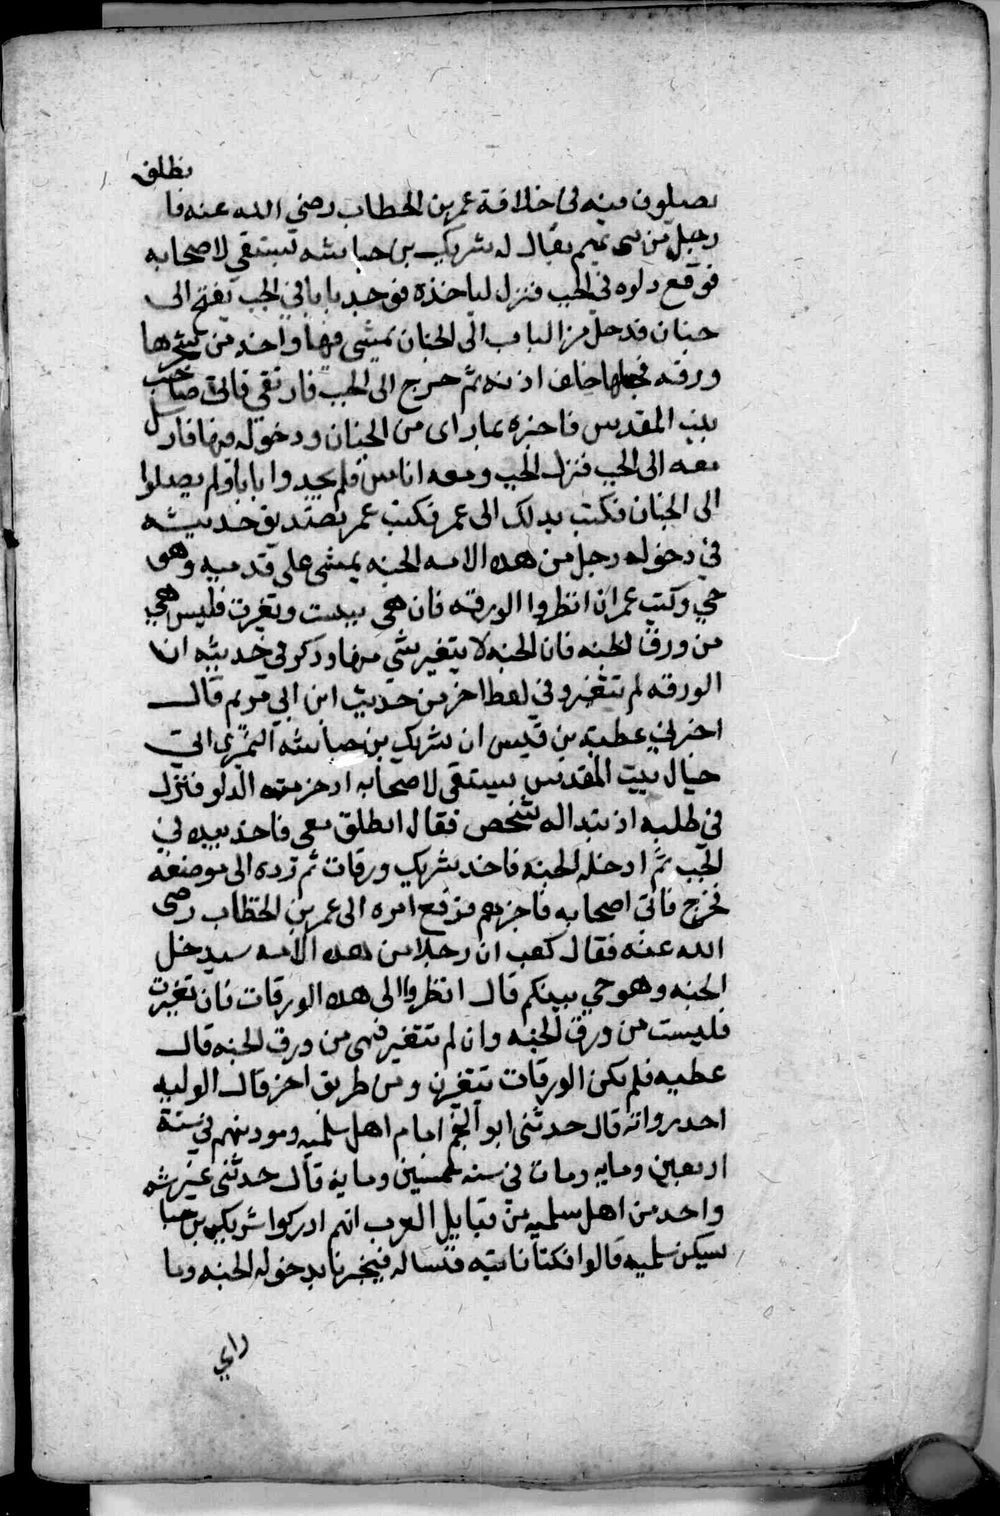 يصلون فيه في خلافة عمر بن الخطاب رضي الله عنه فا
نطلق
رجل من بني تميم يقال له شريك بن حباشه يستقي لاصحابه
فوقع دلوه في الجب فنزل لياخذه فوجد بابا في الجب يفتح الى
جنان فدخل من الباب الى الجنان يمشى فيها واخذ من شجرها
ورقه فجعلها خلف اذنه ثم خرج الى الجب فارتقى فاتى صاحب
بيت المقدس فاخبره بما راى من الجنان ودخوله فيها فارسل
معه الى الجب فنزل الجب ومعه اناس فلم يجدوا بابا ولم يصلوا
الى الجنان فكتب بذلك الى عمر فكتب عمر بصتديق حديثه
في دخول رجل من هذه الامه الجنه يمشى على قدميه وهو
حي وكتب عمر ان انظروا الورقه فان هي يبست وتغيرت فليس هي
من ورق الجنه فان الجنه لا يتغير شي منها وذكر في حديثه ان
الورقه لم تتغير وفي لفظ اخر من حديث ابن ابي مريم قال
اخبرني عطيه بن قيس ان شريك بن حباشه النميري اتى
جبال بيت المقدس يستقي لاصحابه اذ خر منه الدلو فنزل
في طلبه اذ تبدا له شخص فقال انطلق معي فاخذ بيده في
الجب ثم ادخله الجنه فاخذ شريك ورقات ثم رده الى موضعه
فخرج فاتى اصحابه فاخبرهم فرفع امره الى عمر بن الخطاب رضى
الله عنه فقال كعب ان رجلا من هذه الامه سيدخل
الجنه وهو حي بينكم قال انظروا الى هذه الورقات فان تغيرت
فليست من ورق الجنه وان لم تتغير فهى من ورق الجنه قال
عطيه فلم تكن الورقات تتغيرن ومن طريق اخر قال الوليد
احد رواته قال حدثنى ابو النجم امام اهل سلميه وموذنهم في سنة
اربعين ومايه ومات في سنه خمسين ومايه قال حدثنى غير
واحد من اهل سلميه من قبايل العرب انهم ادركوا شريك بن حبا
شه
يسكن سلميه قالوا فكنا ناتيه فنساله فيخبرنا بدخوله الجنه وما
راي